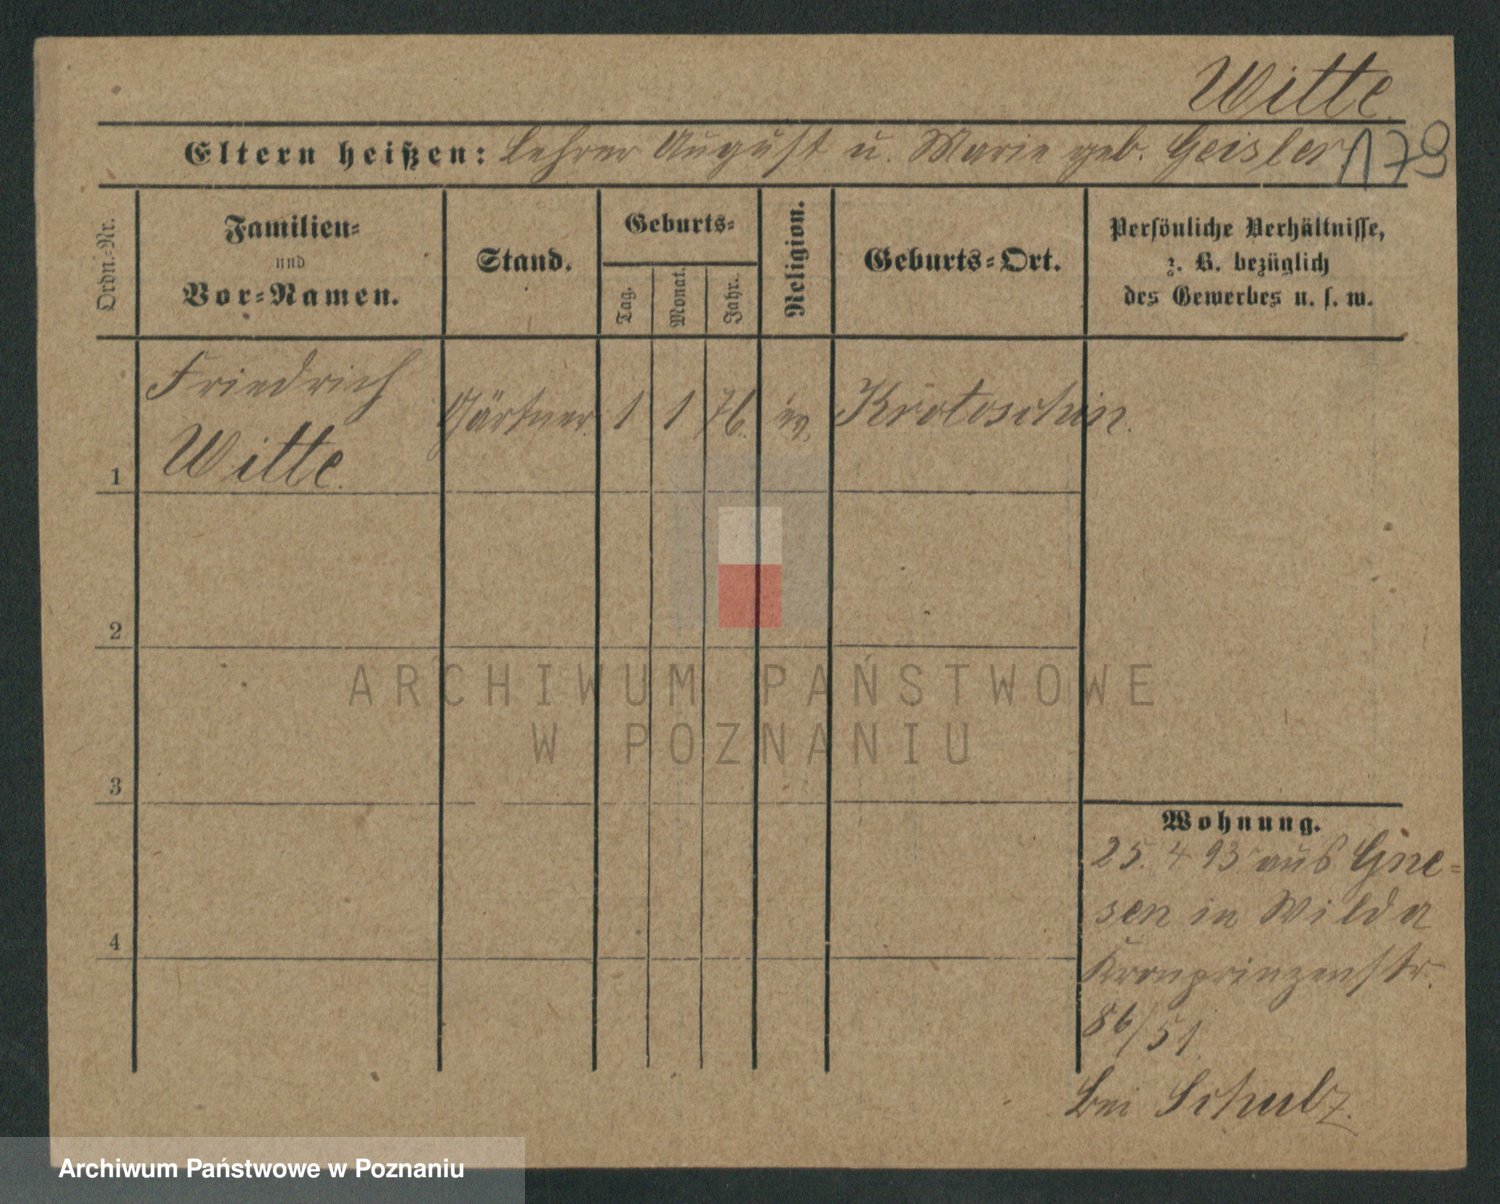 Witte
Eltern heißen: Lehrer August u. Marie geb. Geisler 179
Ordn.-Nr.
Familien-
und
Vor-Namen.
Stand.
Geburts-
Tag.
Monat.
Jahr.
Religion.
Geburts-Ort.
Persönliche Verhältnisse,
z. B. bezüglich
des Gewerbes u. s. w.
1 Friedrich
Witte. Gärtner. 1 1 76. ev. Krotoschin.
2
3
4
Wohnung.
25. 4 93 aus Gne-
sen in Wilda
Kronprinzenstr.
86/51.
bei Schulz.
ARCHIWUM PAŃSTWOWE
W POZNANIU
Archiwum Państwowe w Poznaniu